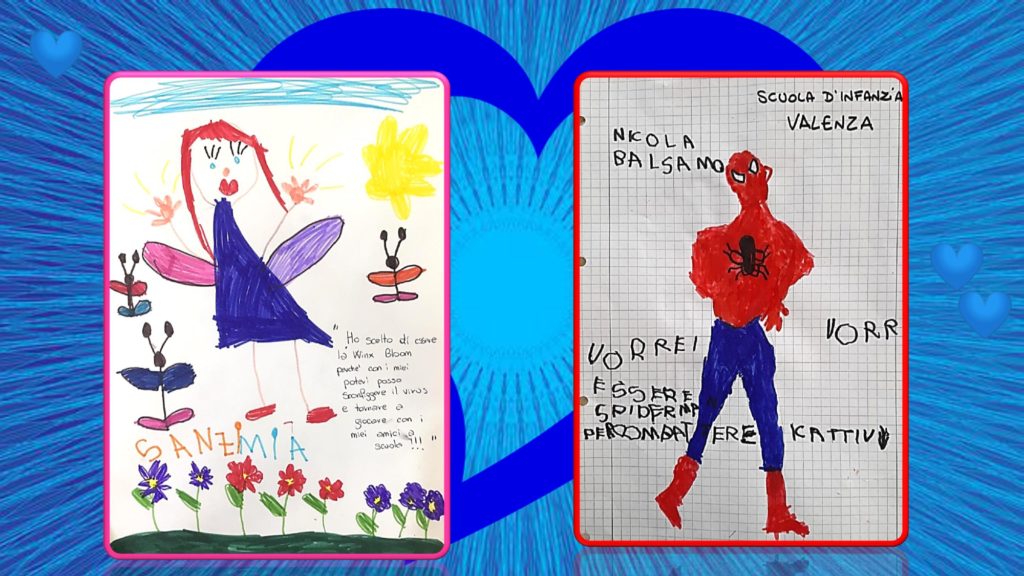 "Ho scelto di essere
la Winx Bloom
perche' con i miei
poteri posso
sconfiggere il virus
e tornare a
giocare con i
miei amici a
scuola !!!"
SANZIMIÀ
SCUOLA D'INFANZIA
VALENZA
NICOLA
BALSAMO
VORREI
VORR
ESSERE
SPIDERMAN
PERCOMBATTERE I KATTIVI